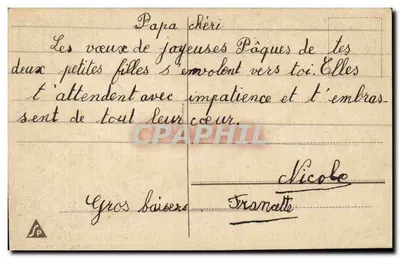 Papa chéri
Les vœux de joyeuses Pâques de tes
deux petites filles s'envolent vers toi. Elles
t'attendent avec impatience et t'embras-
sent de tout leur cœur.
CPAPHIL
Nicole
Gros baisers Francette